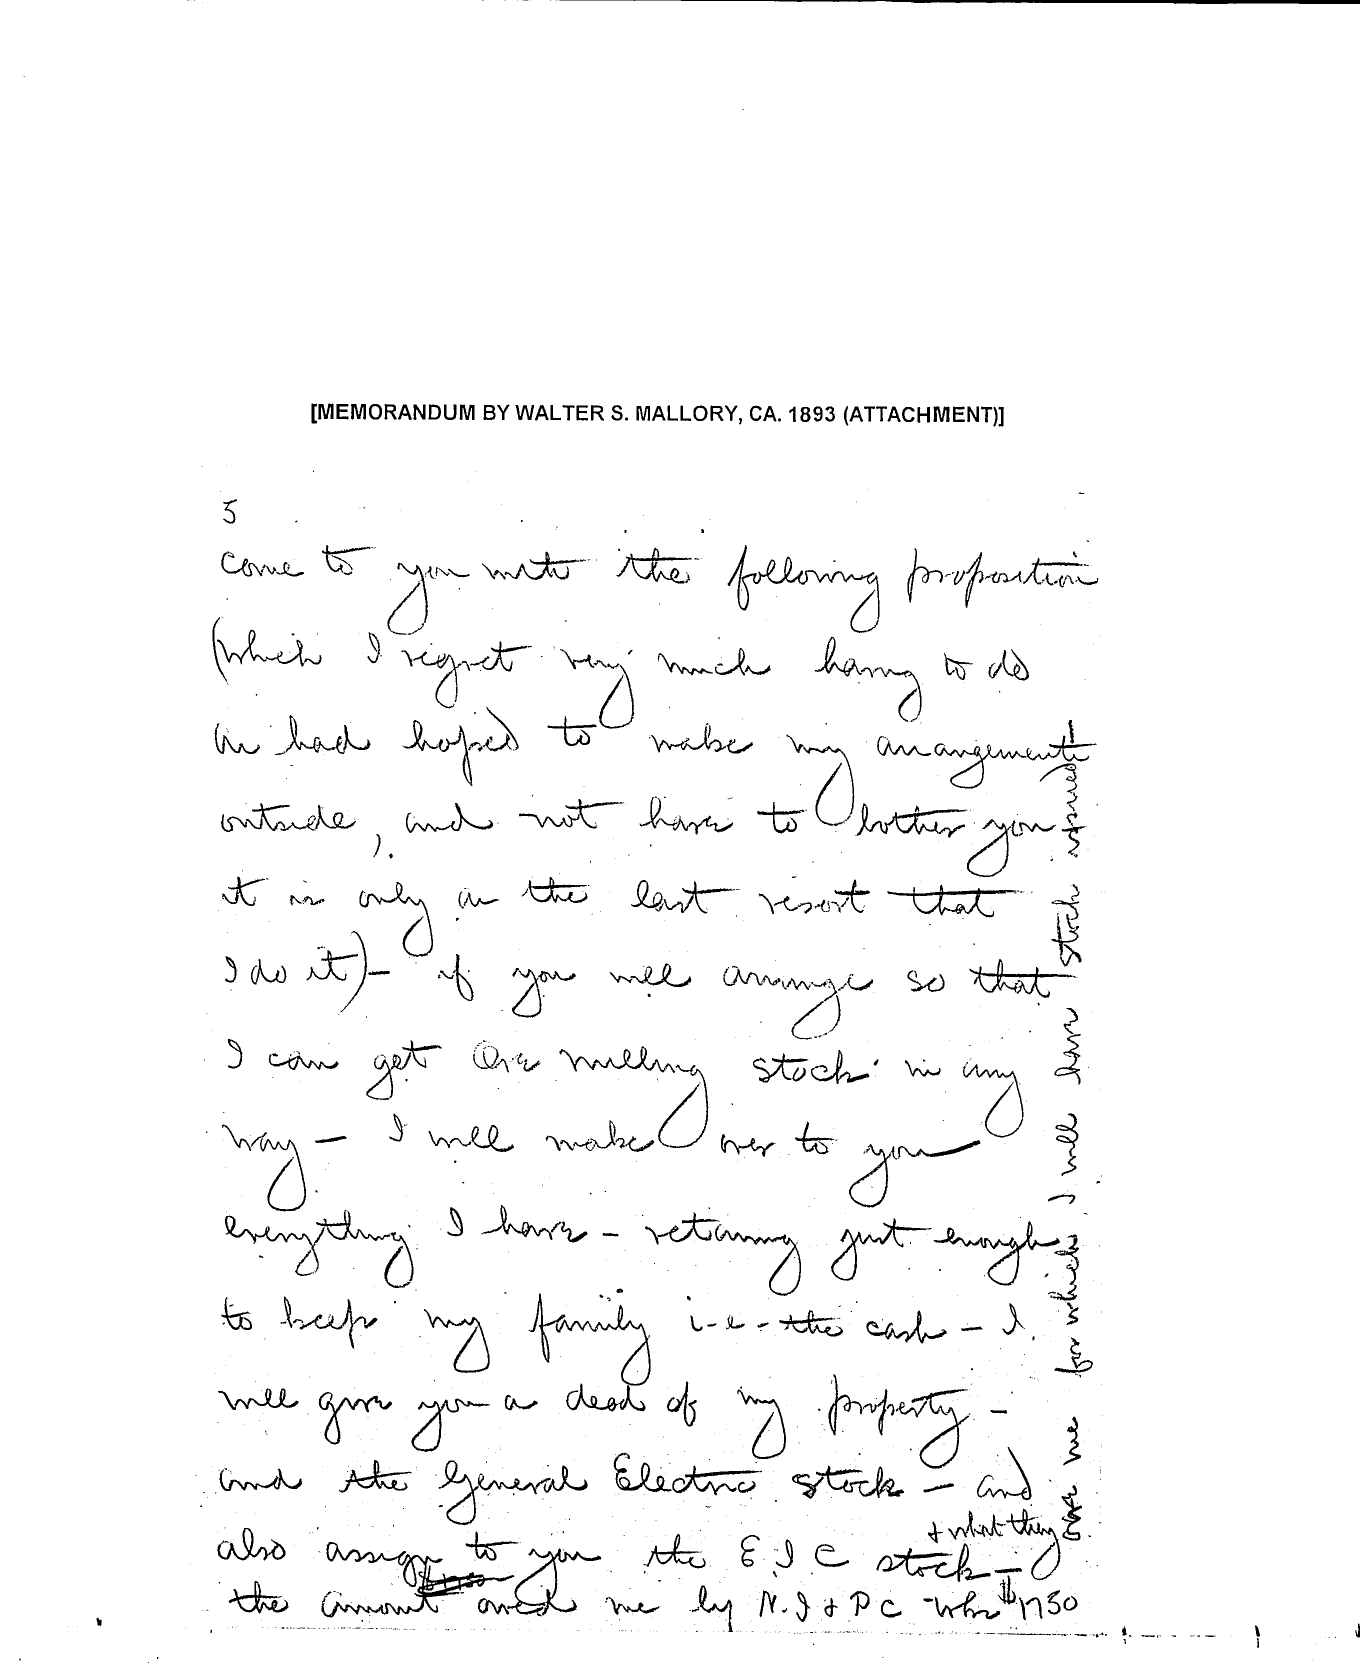 [MEMORANDUM BY WALTER S. MALLORY, CA. 1893 (ATTACHMENT)]
5
come to you with the following proposition
(which I regret very much having to do
as had hoped to make my arrangements
outside, and not have to bother you
it is only as the last resort that
I do it)— if you will arrange so that
I can get Ore milling stock in any
way — I will make over to you
everything I have — retaining just enough
to keep my family i-e- the cash — I
will give you a deed of my property —
and the General Electric stock — and
also assign to you the E I C stock — + what they
owe me for which I will have stock issued —
the amount owed me by N. I & P C Wks $1750